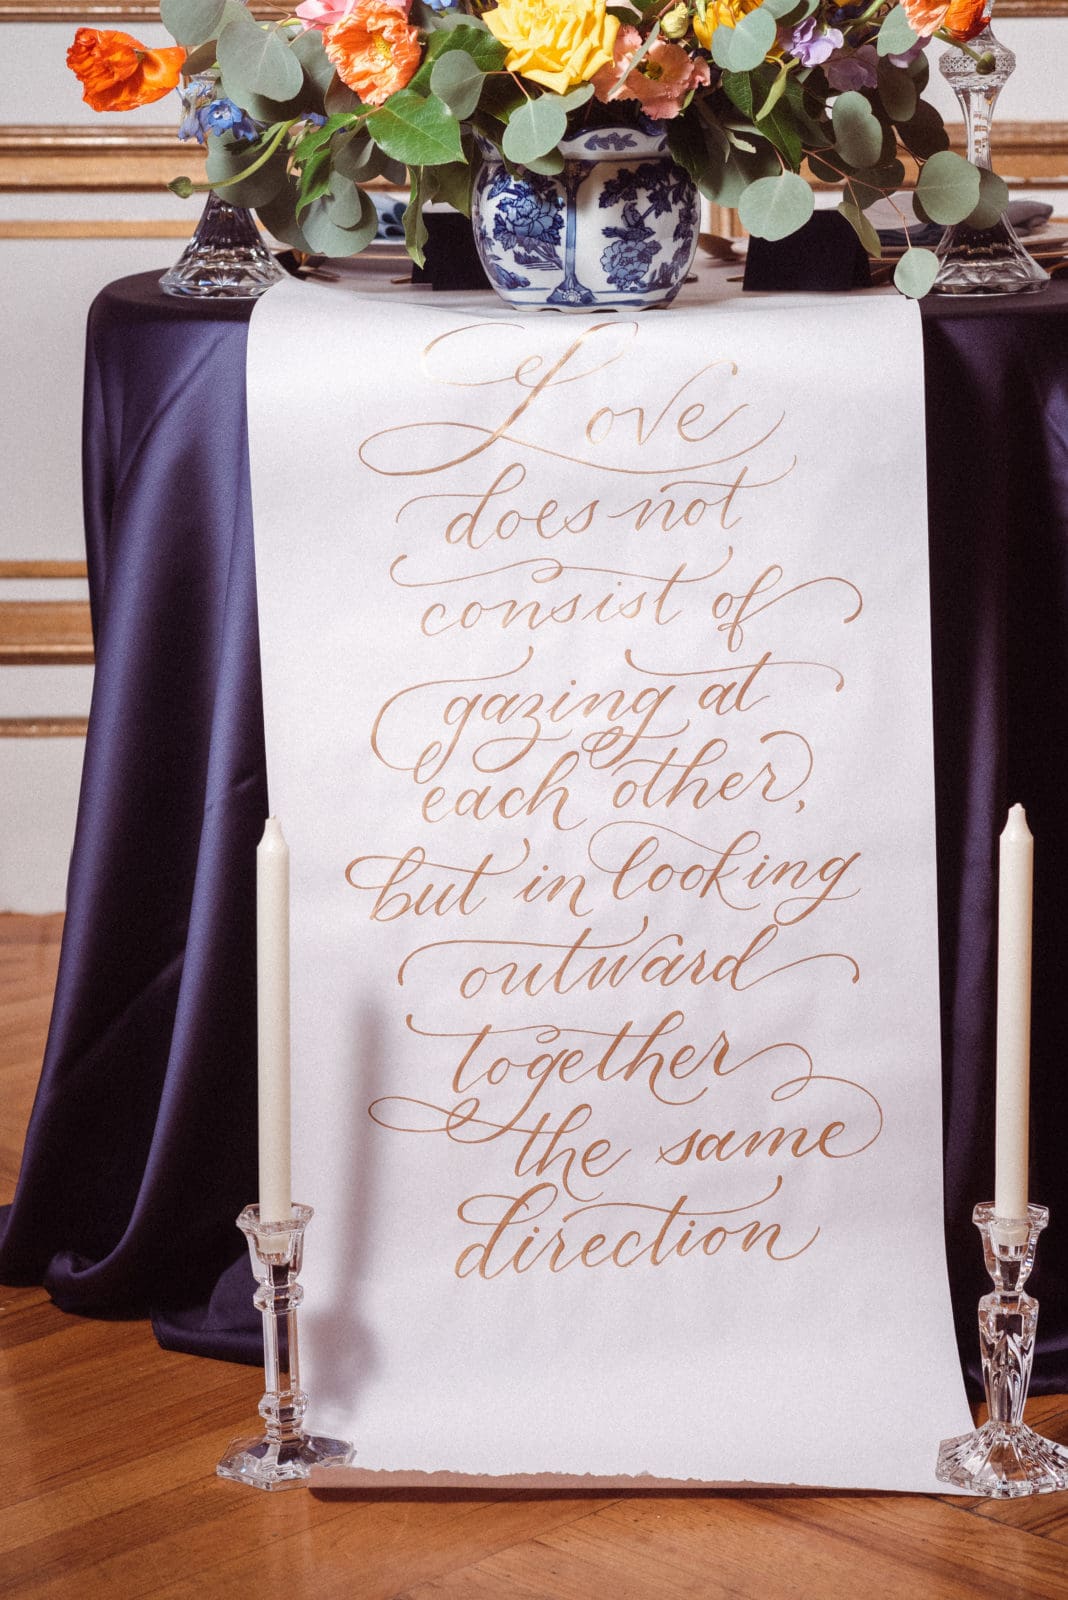 Love
does not
consist of
gazing at
each other,
but in looking
outward
together
the same
direction